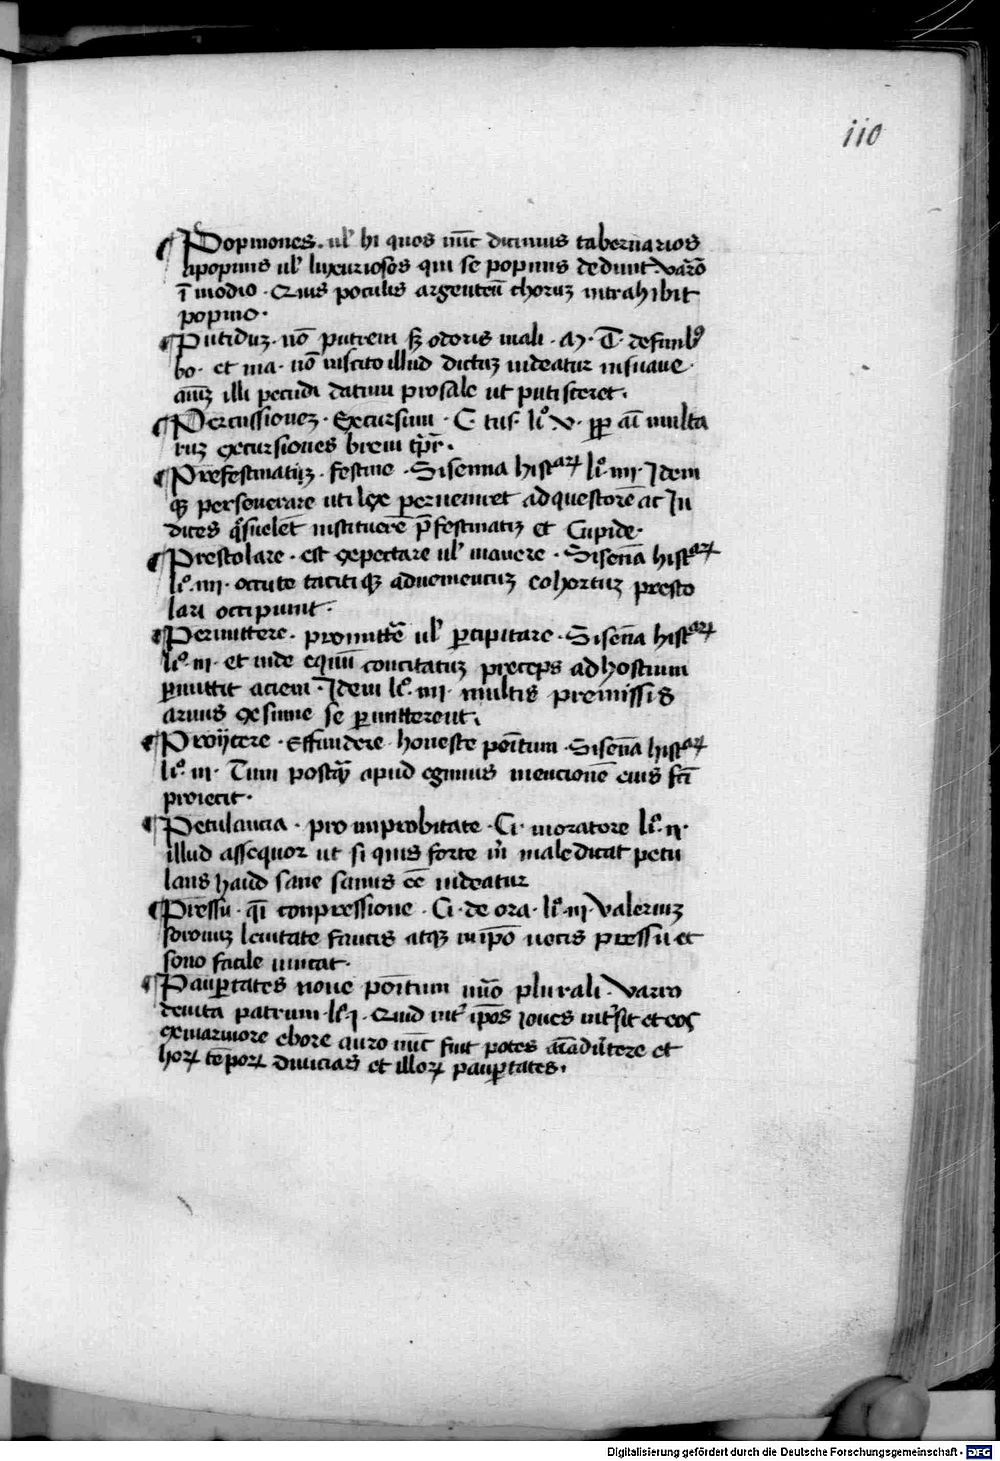 110
¶ Popinones . ul' hi quos nūc dicimus tabernarios
apopinis ul' luxuriosos qui se popinis dedunt . varo
ī modio . Quis poculis argenteū chorum intrahibit
popino .
¶ Putidum . nō putrem sed odoris mali . M . T . de finibus
bo . et ma . nō inscito illud dictum uideatur insuaue .
illi pecudi datum prosale ut putisceret .
¶ Percussionem . Excursum . C . tus . li° . v . aū multa
rum excursiones breui
¶ Prefestinatim . festine . Sisenna histar li° . iiii . Idem
que perseuerare uti lex perueniret ad questorē ac Iu
dices instituerē p̄festinatim et Cupide .
¶ Prestolare . est expectare ul' manere . Sisēna histar
li° . iiii . occute taciti que aduenientum cohortum presto
lari occipiunt .
¶ Permittere . promittē ul' p̄cipitare . Sisēna histar
li° . iii . et inde equum concitatum preceps ad hostium
p̄mittit aciem . Idem li° . iiii . multis premissis
armis ex sinne se p̄mitterent .
¶ Proijcere . Effundere . honeste pōitum . Sisēna histar
li° . iii . Tum postquam apud eginius mencionē eius
proiecit .
¶ Petulancia . pro improbitate . Ci . inoratore li° . ii .
illud assequor ut si quis forte maledicat petu
lans haud sane sanus eē uideatur
¶ Pressu . conpressione . Ci . de ora . li° . iii . Valerium
soronum leuitate faucis atque in ipō uocis pressu et
sono facile uincat .
¶ Paup̄tates noue pōitum nūo plurali . Varro
deuita patrum . li° . i . Quid int' ipōs ioues int'sit et eos
exmarmore ebore auro nūc fiut potes aīaduertere et
horum tēporum diuicias et illorum paup̄tates .
Digitalisierung gefördert durch die Deutsche Forschungsgemeinschaft - DFG